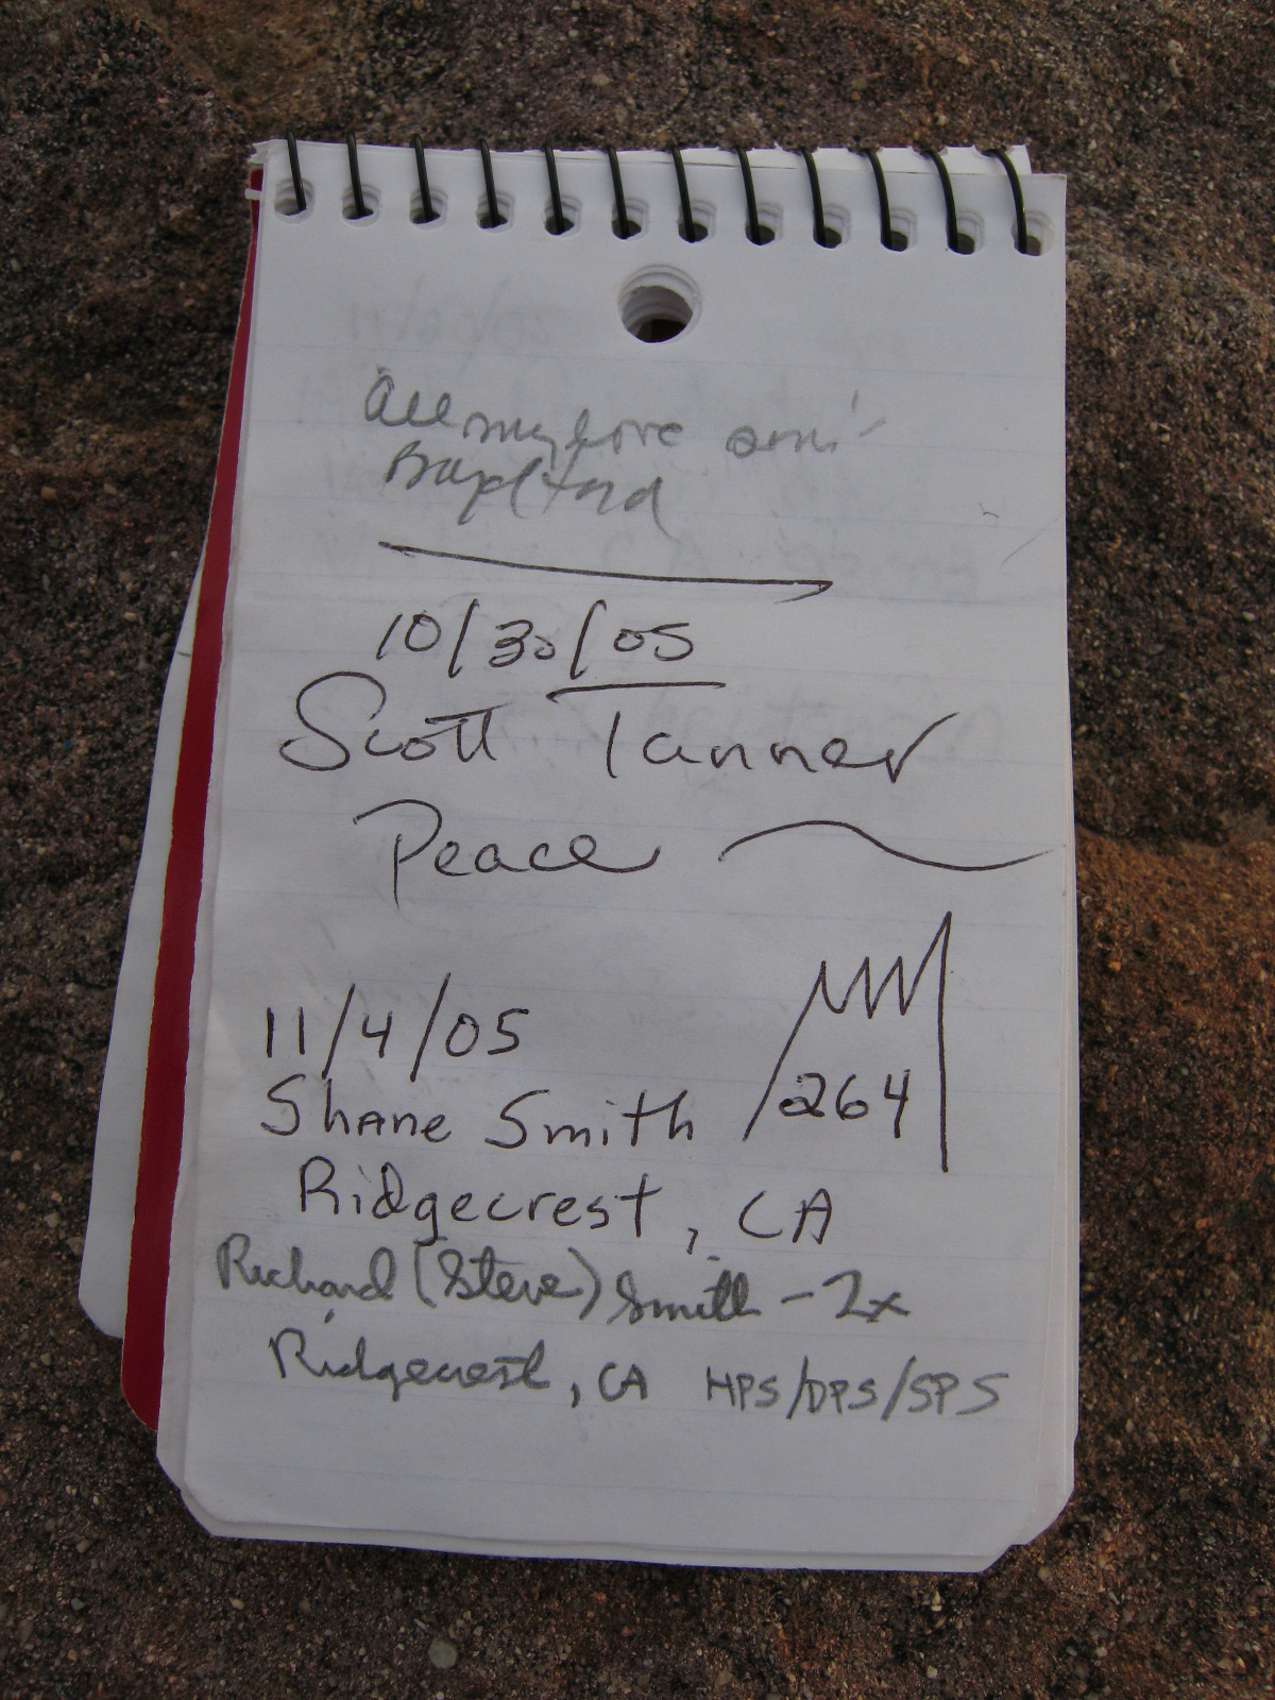 All my love
10/30/05
Scott Tanner
Peace
11/4/05
264
Shane Smith
Ridgecrest, CA
Richard (Steve) Smith - 2x
Ridgecrest, CA HPS/DPS/SPS